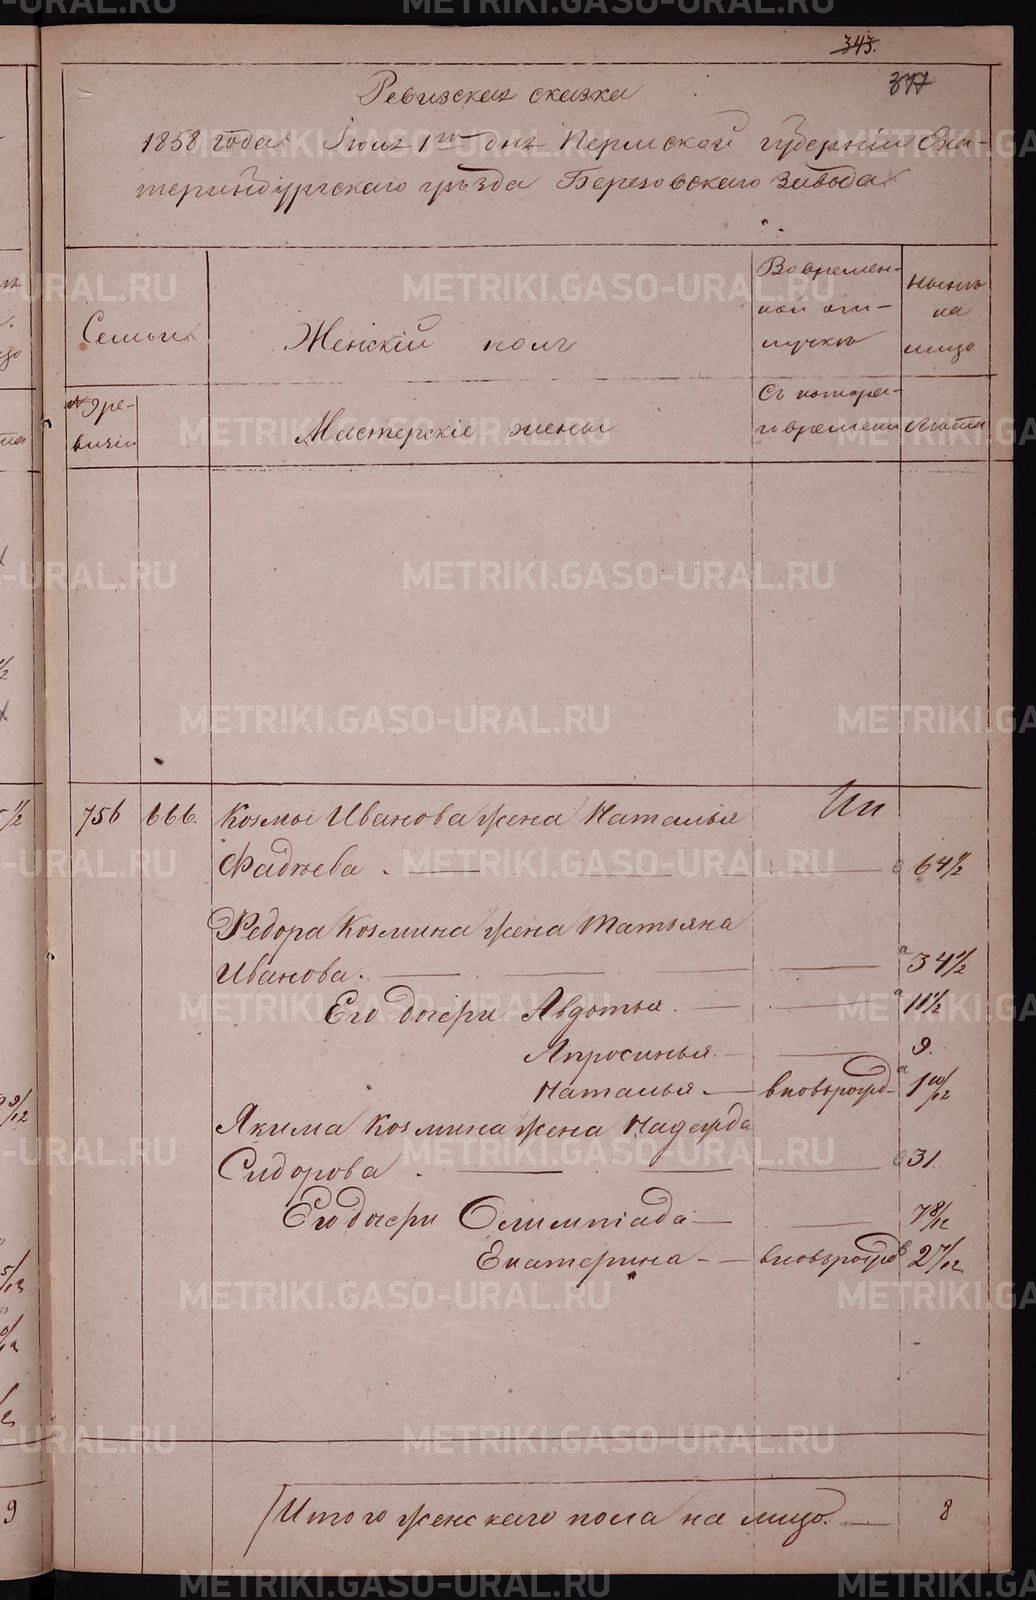 343.
377
Ревизская сказка
1858 года Іюля 1го дня Пермской губерніи Ека-
теринбургскаго уѣзда Березовскаго завода
Семьи
Женскій полъ
Во времен-
ной от-
лучкѣ
Нынѣ
на
лицо
№ ре-
визіи
Мастерскіе жены
Съ котора-
го времени
Лѣта
756 666. Козмы Иванова жена Наталья
Фадѣева. — — — 64 1/2
Ѳедора Козмина жена Татьяна
Иванова. — — — — 34 1/2
Его дочери Авдотья. — — 11 1/2
Апросинья. — — 9.
Наталья — вновьрожд. 1 10/12
Якима Козмина жена Надежда
Сидорова. — — — 31.
Его дочери Олимпіада — — 7 8/12
Екатерина — вновьрожд. 2 7/12
Итого женскаго пола на лицо. — 8
METRIKI.GASO-URAL.RU